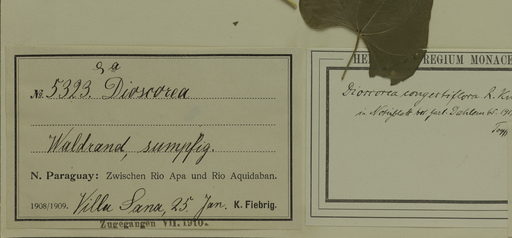 No. 5323. Dioscorea
Waldrand, sumpfig.
N. Paraguay: Zwischen Rio Apa und Rio Aquidaban.
1908/1909. Villa Sana, 25. Jan. K. Fiebrig.
Zugegangen VII. 1910.
HE REGIUM MONACE
Dioscorea congestiflora R. Kn
in Notizblatt bot. gart. Dahlem